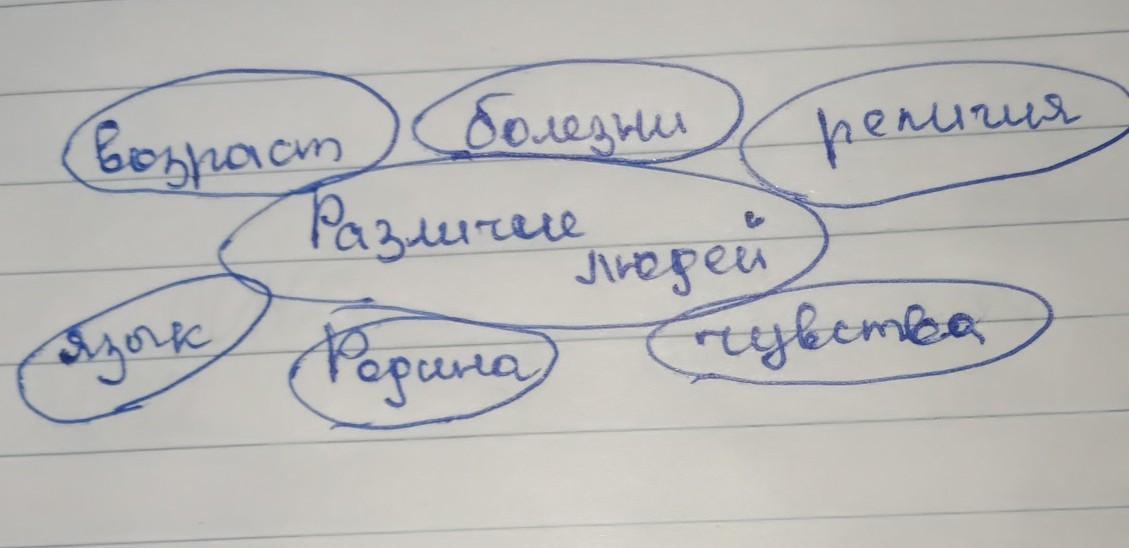 возраст
болезни
религия
Различие
людей
язык
Родина
чувства